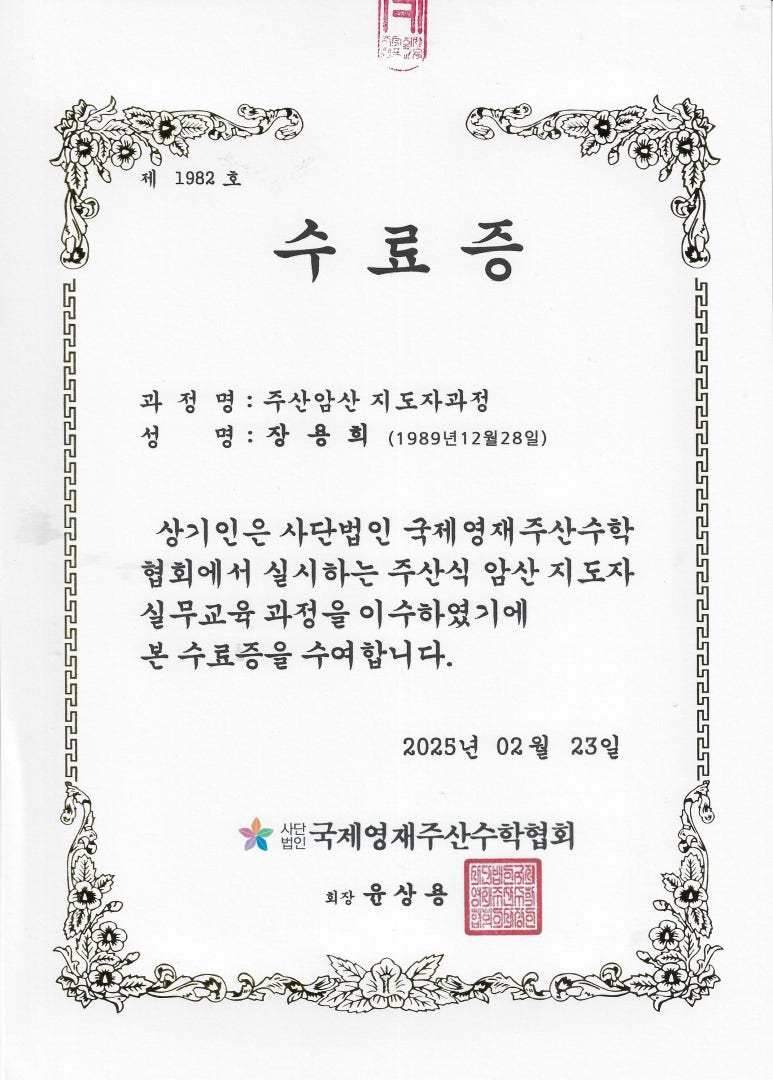 제 1982 호
수료증
과 정 명 : 주산암산 지도자과정
성 명 : 장 용 희 (1989년12월28일)
상기인은 사단법인 국제영재주산수학
협회에서 실시하는 주산식 암산 지도자
실무교육 과정을 이수하였기에
본 수료증을 수여합니다.
2025년 02월 23일
사단법인 국제영재주산수학협회
회장 윤상용